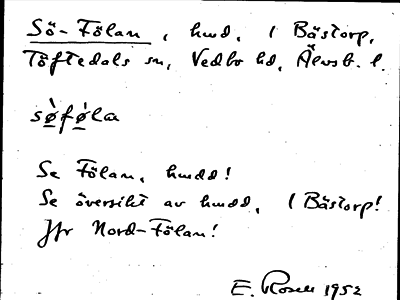 Sö-Fölan, hmd, i Bästorp,
Töftedals sn, Vedbo hd, Älvsb. l.
sø̀fø̀la
Se Fölan, hmdd!
Se översikt av hmdd, i Bästorp!
Jfr Nord-Fölan!
E. Rosell 1952